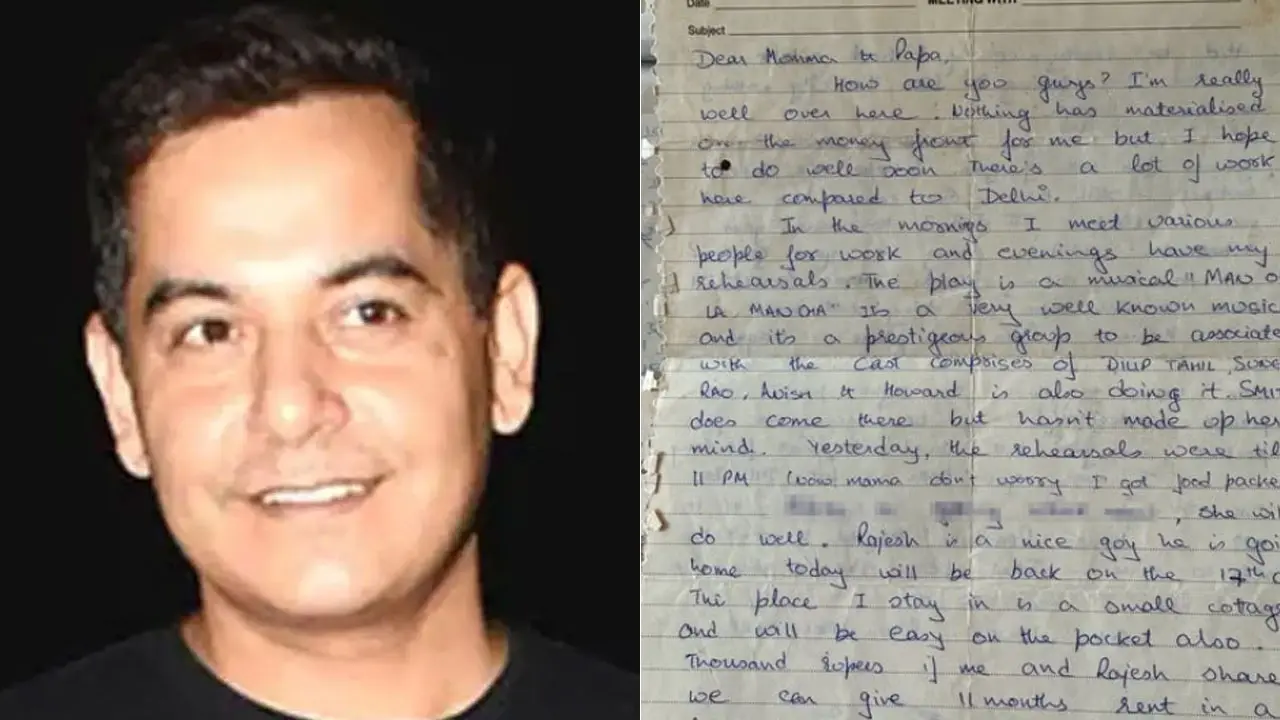 Date
MEETING WITH
Subject
Dear Momma & Papa,
How are you guys? I'm really
well over here. Nothing has materialised
on the money front for me but I hope
to do well soon There's a lot of work
here compared to Delhi.
In the mornings I meet various
people for work and evenings have my
rehearsals. The play is a musical "MAN O
LA MANCHA" Its a very well known music
and its a prestigeous group to be associate
with the cast comprises of DILIP TAHIL,
RAO, & Howard is also doing it. SMI
does come there but hasn't made up her
mind. Yesterday, the rehearsals were til
11 PM (wow mama don't worry I got food packe
, she wil
do well. Rajesh is a nice guy he is goi
home today will be back on the 17th
The place I stay in is a small cottag
and will be easy on the pocket also.
Thousand rupees if me and Rajesh share
we can give 11 months rent in a